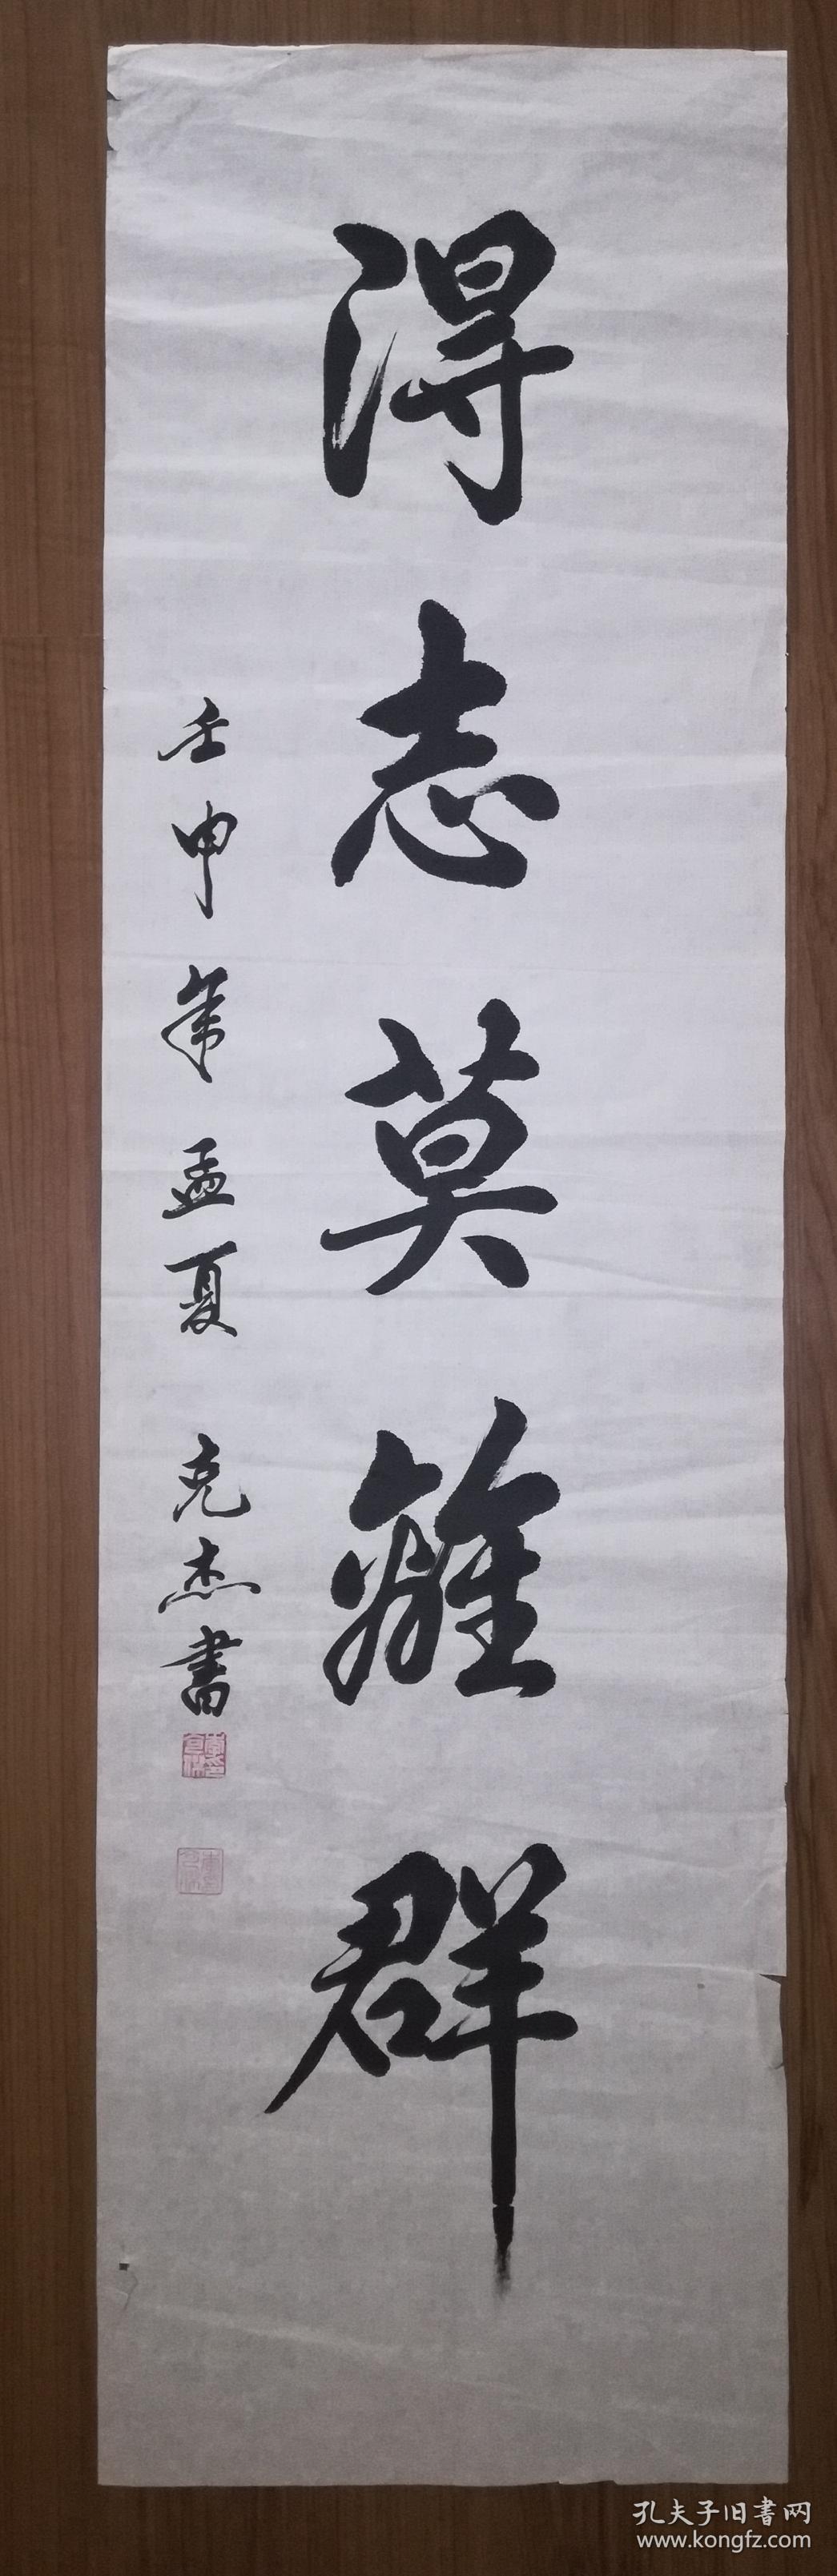 得志莫離群
壬申年孟夏 克杰書
孔夫子旧書网
www.kongfz.com